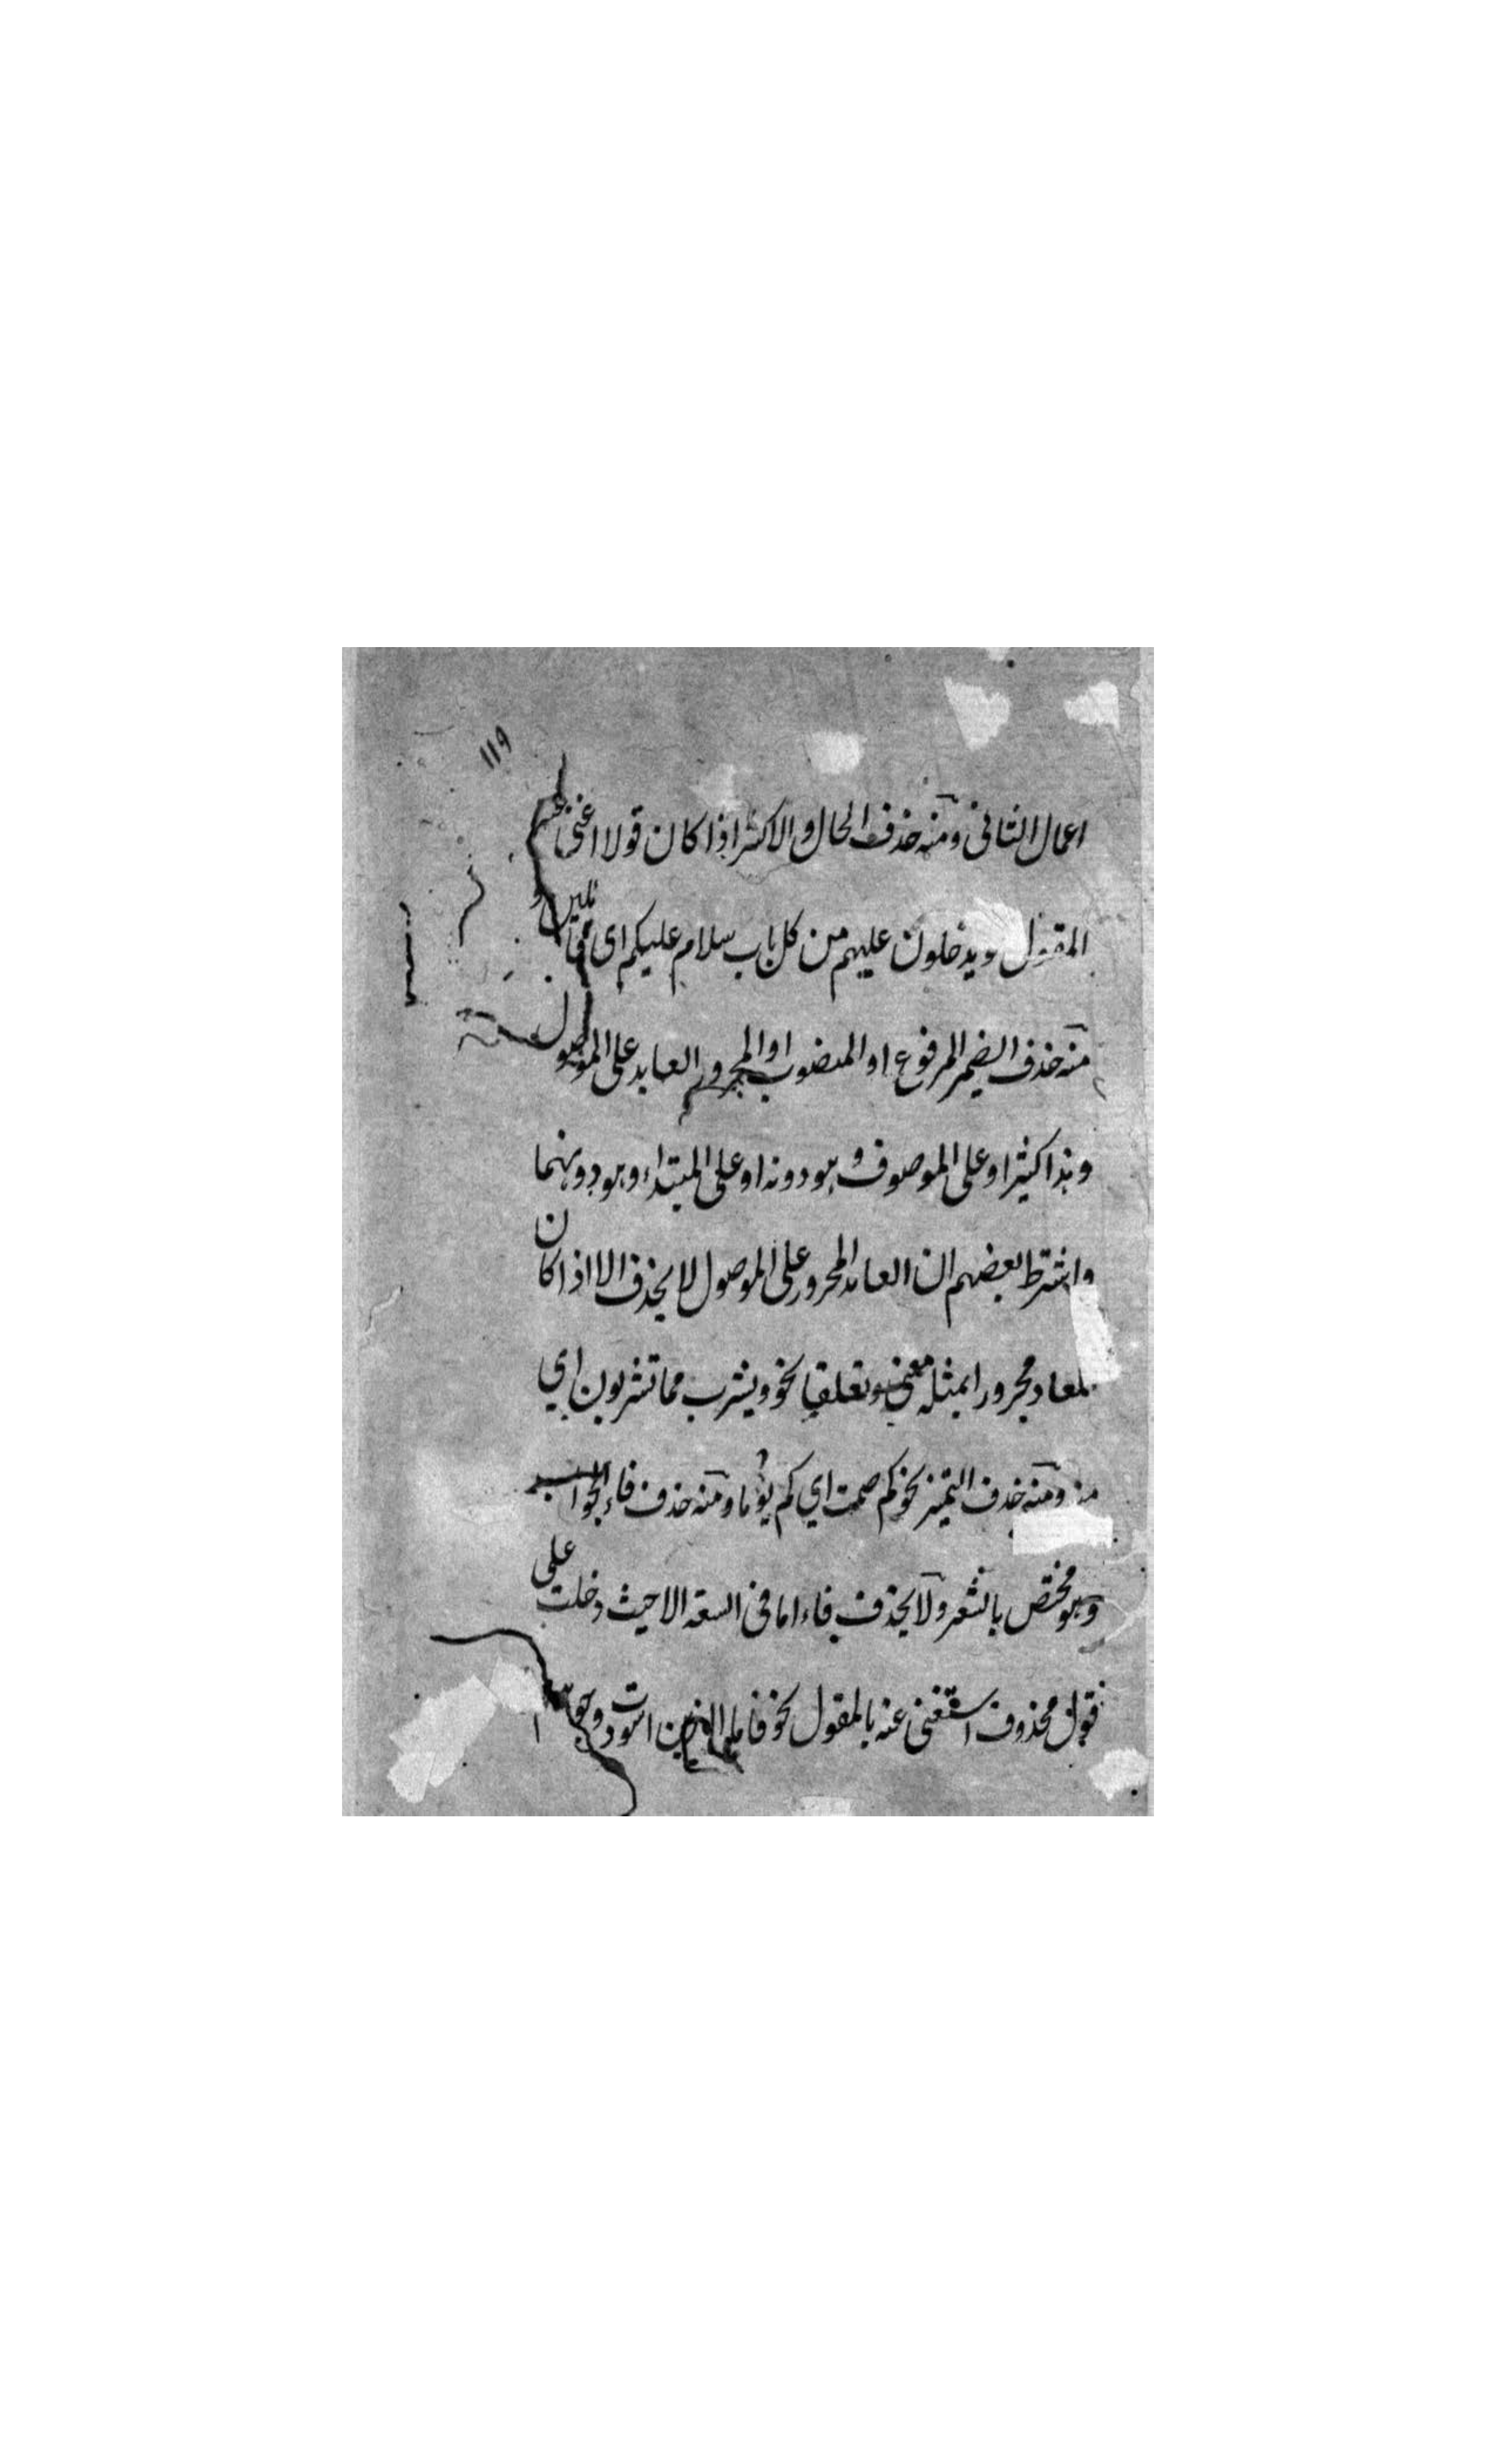 ١١٩
اعمال الثاني ومنه حذف الحال والاكثر اذا كان قولا اغنى عنه
المقول ويدخلون عليهم من كل باب سلام عليكم اى قائلين و
منه حذف الضمير المرفوع او المنصوب او المجرور العايد على الموصول
وهذا كثير او على الموصوف وهو دونه او على المبتداء وهو دونهما
واشترط بعضهم ان العايد المجرور على الموصول لا يحذف الا اذا كان
المعاد مجرورا بمثله معنى وتعلقا نحو ويشرب مما تشربون اي
منه ومنه حذف التميز نحو كم صمت اي كم يوما ومنه حذف فاء الجواب
وهو مختص بالشعر ولا يحذف فاء اما في السعة الا حيث دخلت على
قول محذوف استغنى عنه بالمقول نحو فاما الذين اسودت وجو